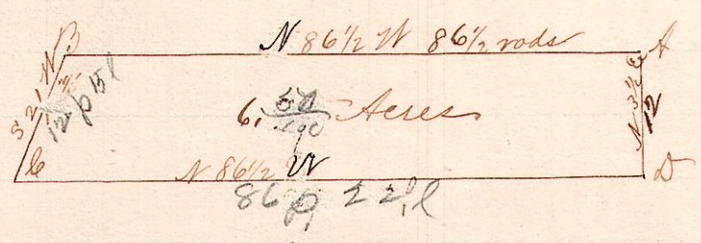 N 86½ W 86½ rods
B
A
N
S 21
12 p 15 l
6, 50/100 Acres
N 3½ E
12
C
N 86½ W
D
86 p, 22 l